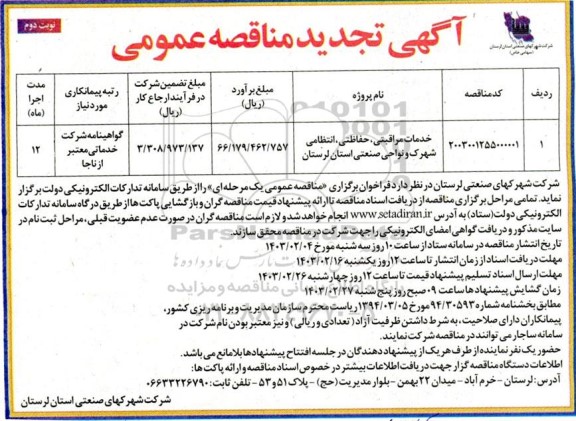 نوبت دوم
آگهی تجدید مناقصه عمومی
شرکت شهرکهای صنعتی استان لرستان
(سهامی خاص)
ردیف
کد مناقصه
نام پروژه
مبلغ برآورد (ریال)
مبلغ تضمین شرکت در فرآیند ارجاع کار (ریال)
رتبه پیمانکاری مورد نیاز
مدت اجرا (ماه)
۱
۲۰۰۳۰۰۱۲۵۵۰۰۰۰۰۱
خدمات مراقبتی، حفاظتی، انتظامی شهرک و نواحی صنعتی استان لرستان
۶۶/۱۷۹/۴۶۲/۷۵۷
۳/۳۰۸/۹۷۳/۱۳۷
گواهینامه شرکت خدماتی معتبر از ناجا
۱۲
شرکت شهرکهای صنعتی لرستان در نظر دارد فراخوان برگزاری «مناقصه عمومی یک مرحله‌ای» را از طریق سامانه تدارکات الکترونیکی دولت برگزار
نماید. تمامی مراحل برگزاری مناقصه از دریافت اسناد مناقصه تا ارائه پیشنهاد قیمت مناقصه گران و بازگشایی پاکت‌ها از طریق درگاه سامانه تدارکات
الکترونیکی دولت (ستاد) به آدرس www.setadiran.ir انجام خواهد شد و لازم است مناقصه گران در صورت عدم عضویت قبلی، مراحل ثبت نام در
سایت مذکور و دریافت گواهی امضای الکترونیکی را جهت شرکت در مناقصه محقق سازند.
تاریخ انتشار مناقصه در سامانه ستاد از ساعت ۱۰ روز سه شنبه مورخ ۱۴۰۳/۰۲/۰۴
مهلت دریافت اسناد از زمان انتشار تا ساعت ۱۲ روز یکشنبه ۱۴۰۳/۰۲/۱۶
مهلت ارسال اسناد تسلیم پیشنهاد قیمت تا ساعت ۱۲ روز چهارشنبه ۱۴۰۳/۰۲/۲۶
زمان گشایش پیشنهادها ساعت ۰۹ صبح روز پنج شنبه ۱۴۰۳/۰۲/۲۷
مطابق بخشنامه شماره ۹۴/۳۰۵۹۳ مورخ ۱۳۹۴/۰۳/۰۵ ریاست محترم سازمان مدیریت و برنامه ریزی کشور،
پیمانکاران دارای صلاحیت، به شرط داشتن ظرفیت آزاد (تعدادی و ریالی) و نیز معتبر بودن نام شرکت در
سامانه ساجار می توانند در مناقصه شرکت نمایند.
حضور یک نفر نماینده از طرف هر یک از پیشنهاد دهندگان در جلسه افتتاح پیشنهادها بلامانع می باشد.
اطلاعات دستگاه مناقصه گزار جهت دریافت اطلاعات بیشتر در خصوص اسناد مناقصه و ارائه پاکت ها:
آدرس: لرستان - خرم آباد - میدان ۲۲ بهمن - بلوار مدیریت (حج) - پلاک ۵۱ و ۵۳ - تلفن ثابت: ۰۶۶۳۳۲۲۶۷۹۰
شرکت شهرکهای صنعتی استان لرستان